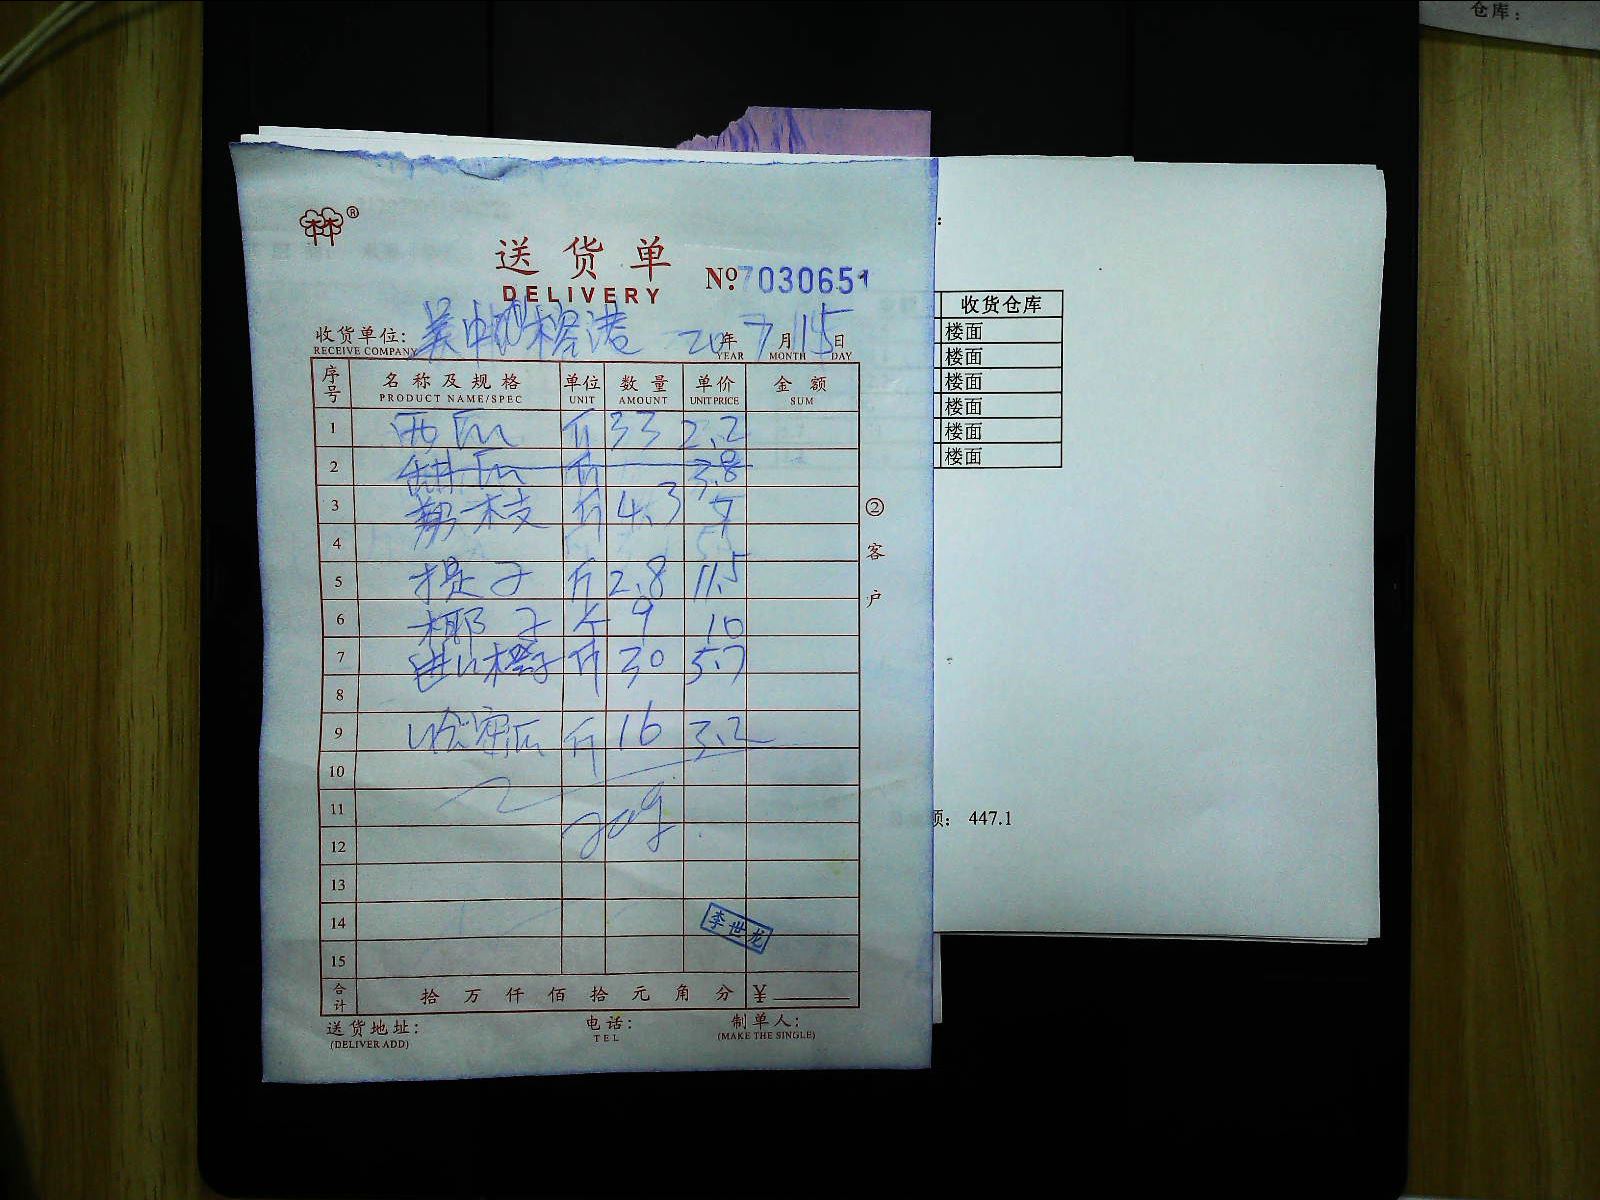 仓库：
送货单
DELIVERY
Nº 7030651
收货单位： 吴中 20年7月15日
RECEIVE COMPANY YEAR MONTH DAY
序号 名称及规格 单位 数量 单价 金额
PRODUCT NAME/SPEC UNIT AMOUNT UNIT PRICE SUM
1 西瓜 斤 33 2.2
2 斤 3.8
3 荔枝 斤 4.3 7
4
5 提子 斤 2.8 11.5
6 椰子 个 9 10
7 进口橙子 斤 30 5.7
8
9 哈密瓜 斤 16 3.2
10
11
12
13
14
15
李世龙
合计 拾万仟佰拾元角分 ¥
送货地址： 电话： 制单人：
(DELIVER ADD) TEL (MAKE THE SINGLE)
②客户
收货仓库
楼面
楼面
楼面
楼面
楼面
楼面
447.1